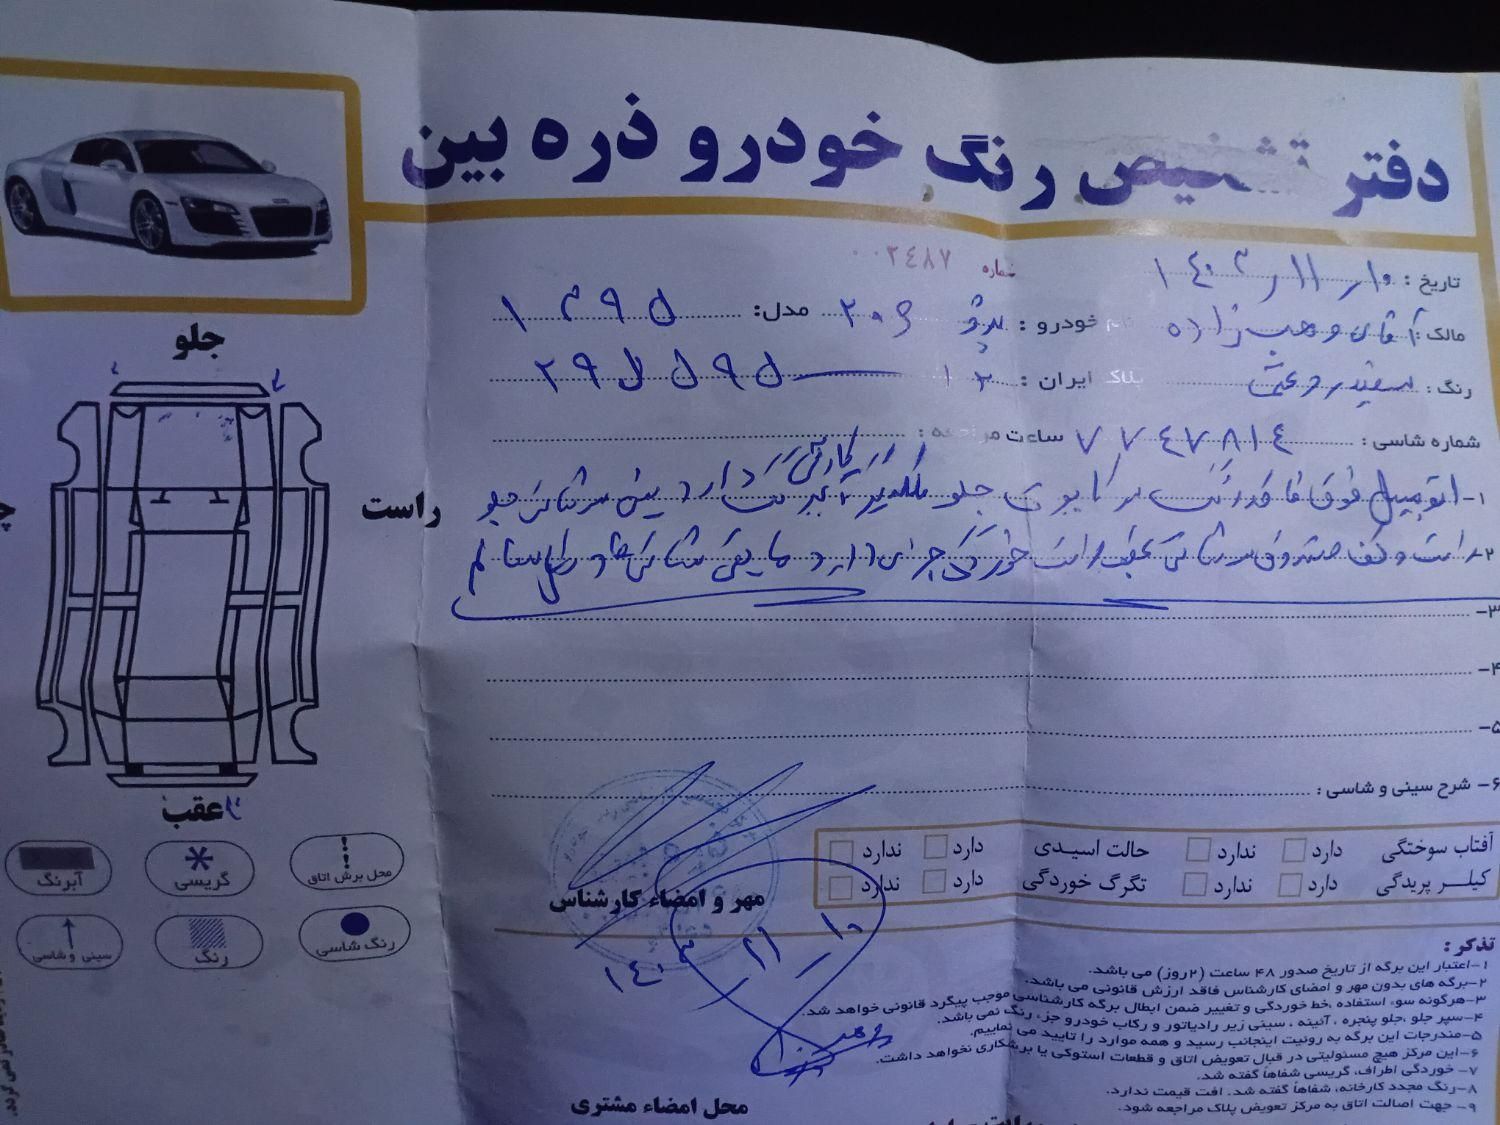 دفتر تشخیص رنگ خودرو ذره بین
شماره ۰۰۲۴۸۷
تاریخ : ۱۴۰۳/۱۱/۱۰
مالک : آقای وهب زاده نام خودرو : پژو ۲۰۶ مدل: ۱۳۹۵
رنگ : سفید روغنی پلاک ایران : ۲۹ ل ۵۹۵
شماره شاسی : ۷۷۴۷۸۱۴ ساعت مراجعه :
۱- اتومبیل فوق فاقد رنگ کاپوت جلو آبرنگ دارد سینی سرشاسی جلو
۲- راست و کف صندوق سرشاسی عقب راست خوردگی جزئی دارد مابقی شاسی ها سالم
۳-
۴-
۵-
۶- شرح سینی و شاسی :
جلو
راست
عقب
محل برش اتاق
گریسی
آبرنگ
رنگ شاسی
رنگ
سینی و شاسی
آفتاب سوختگی دارد ندارد حالت اسیدی دارد ندارد
کیلــر پریدگی دارد ندارد تگرگ خوردگی دارد ندارد
مهر و امضاء کارشناس
تذکر :
۱-اعتبار این برگه از تاریخ صدور ۴۸ ساعت (۲روز) می باشد.
۲-برگه های بدون مهر و امضای کارشناس فاقد ارزش قانونی می باشد.
۳-هرگونه سوء استفاده ،خط خوردگی و تغییر ضمن ابطال برگه کارشناسی موجب پیگرد قانونی خواهد شد.
۴-سپر جلو ،جلو پنجره ، آئینه ، سینی زیر رادیاتور و رکاب خودرو جزء رنگ نمی باشد.
۵-مندرجات این برگه به رویت اینجانب رسید و همه موارد را تایید می نماییم.
۶-این مرکز هیچ مسئولیتی در قبال تعویض اتاق و قطعات استوکی یا برشکاری نخواهد داشت.
۷-خوردگی اطراف، گریسی شفاهاً گفته شد.
۸-رنگ مجدد کارخانه، شفاهاً گفته شد. افت قیمت ندارد.
۹-جهت اصالت اتاق به مرکز تعویض پلاک مراجعه شود.
محل امضاء مشتری